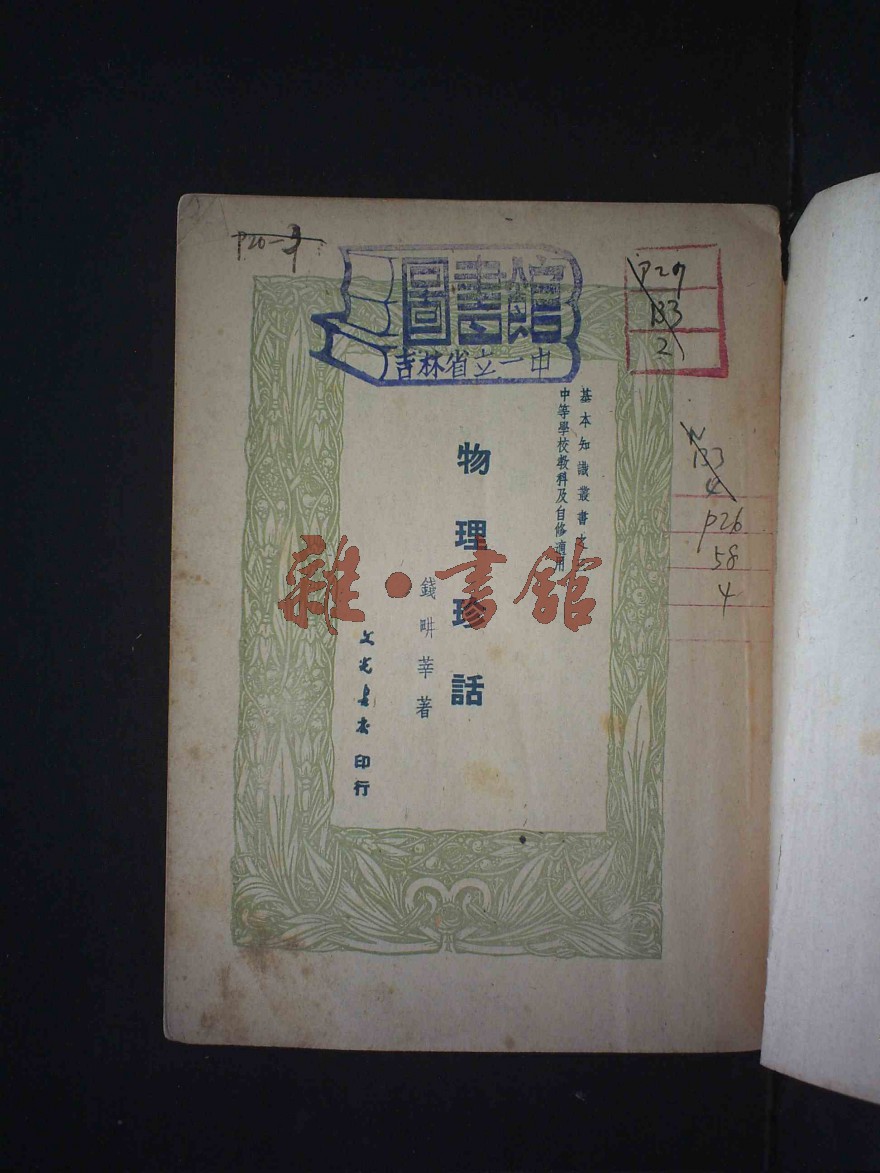 P20-
圖書館
吉林省立一中
P29
133
2
N
133
4
P26
58
4
基本知識叢書之
中等學校教科及自修適用
物理珍話
錢畊莘著
文光書店印行
雜·書館